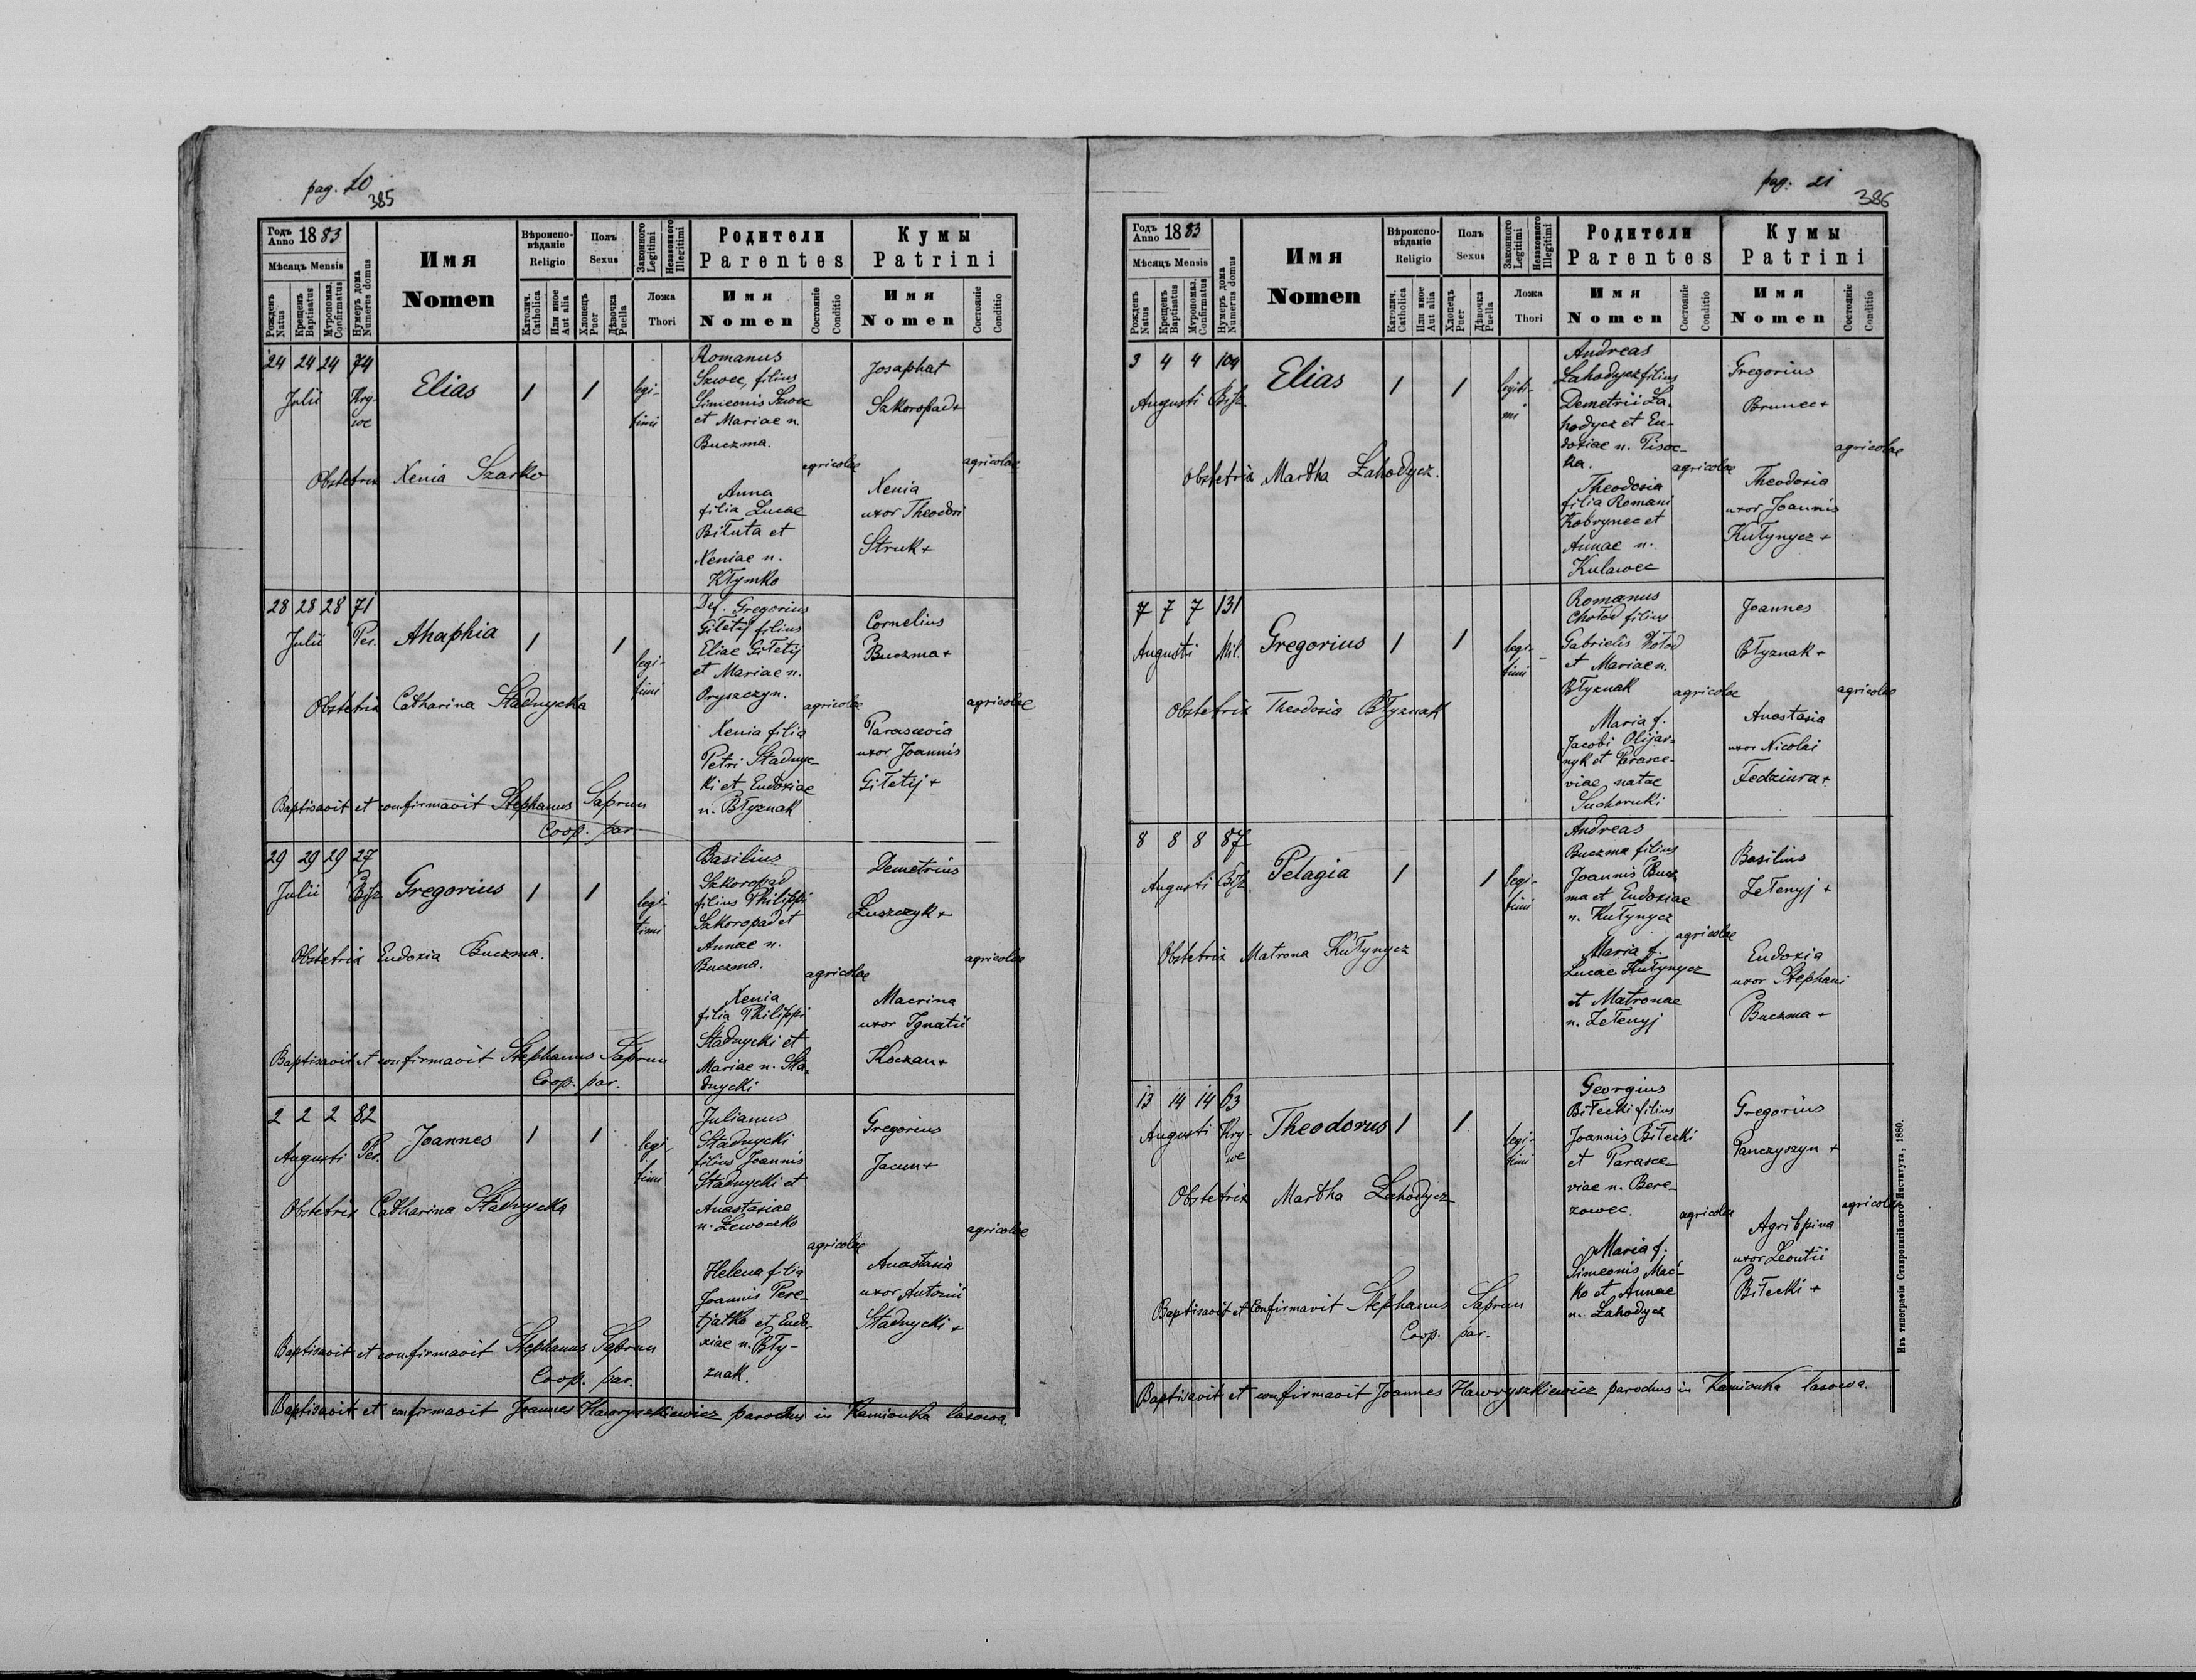 pag. 20
385
Годъ Anno 1883
Мѣсяцъ Mensis
Рожденъ Natus
Крещенъ Baptisatus
Мѵропомаз. Confirmatus
Нумеръ дома Numerus domus
Имя
Nomen
Вѣроиспо-
вѣданіе
Religio
Католич. Catholica
Или иное Aut alia
Полъ
Sexus
Хлопецъ Puer
Дѣвочка Puella
Законного Legitimi
Незаконного Illegitimi
Ложа
Thori
Родители
Parentes
Имя
Nomen
Состояніе Conditio
Кумы
Patrini
Имя
Nomen
Состояніе Conditio
24 24 24 74
Julii Kry-
we
Elias
1 1
legi-
timi
Romanus
Szwec, filius
Simeonis Szwec
et Mariae n.
Buczma.
agricolae
Anna
filia Lucae
Biłuta et
Xeniae n.
Kłymko
Josaphat
Sakoropad+
agricolae
Xenia
uxor Theodori
Struk+
Obstetrix Xenia Szarko
28 28 28 71
Julii Per.
Ahaphia
1 1
legi-
timi
Def. Gregorius
Giłetij filius
Eliae Giłetij
et Mariae n.
Pryszczyn.
agricolae
Xenia filia
Petri Stadnyc-
ki et Eudoxiae
n. Błyznak
Cornelius
Buczma+
agricolae
Parascevia
uxor Joannis
Giłetij+
Obstetrix Catharina Stadnycka
Baptisavit et confirmavit Stephanus Saprun
Coop. par.
29 29 29 27
Julii Biłz
Gregorius
1 1
legi-
timi
Basilius
Szkoropad
filius Philippi
Szkoropad et
Annae n.
Buczma.
agricolae
Xenia
filia Philippi
Stadnycki et
Mariae n. Sta-
dnycki
Demetrius
Łuszczyk+
agricolae
Macrina
uxor Ignatii
Koczan+
Obstetrix Eudoxia Buczma.
Baptisavit et confirmavit Stephanus Saprun
Coop. par.
2 2 2 82
Augusti Per.
Joannes
1 1
legi-
timi
Julianus
Stadnycki
filius Joannis
Stadnycki et
Anastasiae
n. Lewoczko
agricolae
Helena filia
Joannis Pere-
tjatko et Eudo-
xiae n. Bły-
znak.
Gregorius
Jacun+
agricolae
Anastasia
uxor Antonii
Stadnycki+
Obstetrix Catharina Stadnycka
Baptisavit et confirmavit Stephanus Saprun
Coop. par.
Baptisavit et confirmavit Joannes Hawryszkiewicz parochus in Kamionka lasowa.
pag. 21
386
Годъ Anno 1883
Мѣсяцъ Mensis
Рожденъ Natus
Крещенъ Baptisatus
Мѵропомаз. Confirmatus
Нумеръ дома Numerus domus
Имя
Nomen
Вѣроиспо-
вѣданіе
Religio
Католич. Catholica
Или иное Aut alia
Полъ
Sexus
Хлопецъ Puer
Дѣвочка Puella
Законного Legitimi
Незаконного Illegitimi
Ложа
Thori
Родители
Parentes
Имя
Nomen
Состояніе Conditio
Кумы
Patrini
Имя
Nomen
Состояніе Conditio
3 4 4 109
Augusti Biłz.
Elias
1 1
legiti-
mi
Andreas
Łahodycz filius
Demetrii Ła-
hodycz et Eu-
doxiae n. Pisoc-
ka.
agricolae
Theodosia
filia Romani
Kobrynec et
Annae n.
Kulawec
Gregorius
Brunec+
agricolae
Theodosia
uxor Joannis
Kułynycz+
Obstetrix Martha Łahodycz.
7 7 7 131
Augusti Mił.
Gregorius
1 1
legi-
timi
Romanus
Chołod filius
Gabrielis Chołod
et Mariae n.
Błyznak
agricolae
Maria f.
Jacobi Olijar-
nyk et Parasce-
viae, natae
Suchoruki
Joannes
Błyznak+
agricolae
Anastasia
uxor Nicolai
Fedziura+
Obstetrix Theodosia Błyznak
8 8 8 87
Augusti Biłz.
Pelagia
1 1
legi-
timi
Andreas
Buczma filius
Joannis Bucz-
ma et Eudoxiae
n. Kułynycz
agricolae
Maria f.
Lucae Kułynycz
et Matronae
n. Zełenyj
Basilius
Zełenyj+
Eudoxia
uxor Stephani
Buczma+
Obstetrix Matrona Kułynycz
13 14 14 63
Augusti Kry-
we
Theodorus
1 1
legi-
timi
Georgius
Biłecki filius
Joannis Biłecki
et Parasce-
viae n. Bere-
zowec.
agricolae
Maria f.
Simeonis Mać-
ko et Annae
n. Łahodycz
Gregorius
Panczyszyn+
agricolae
Agrippina
uxor Leontii
Biłecki+
Obstetrix Martha Łahodycz
Baptisavit et Confirmavit Stephanus Saprun
Coop. par.
Baptisavit et confirmavit Joannes Hawryszkiewicz parochus in Kamionka lasowa.
Изъ типографіи Ставропигійского Института, 1880.